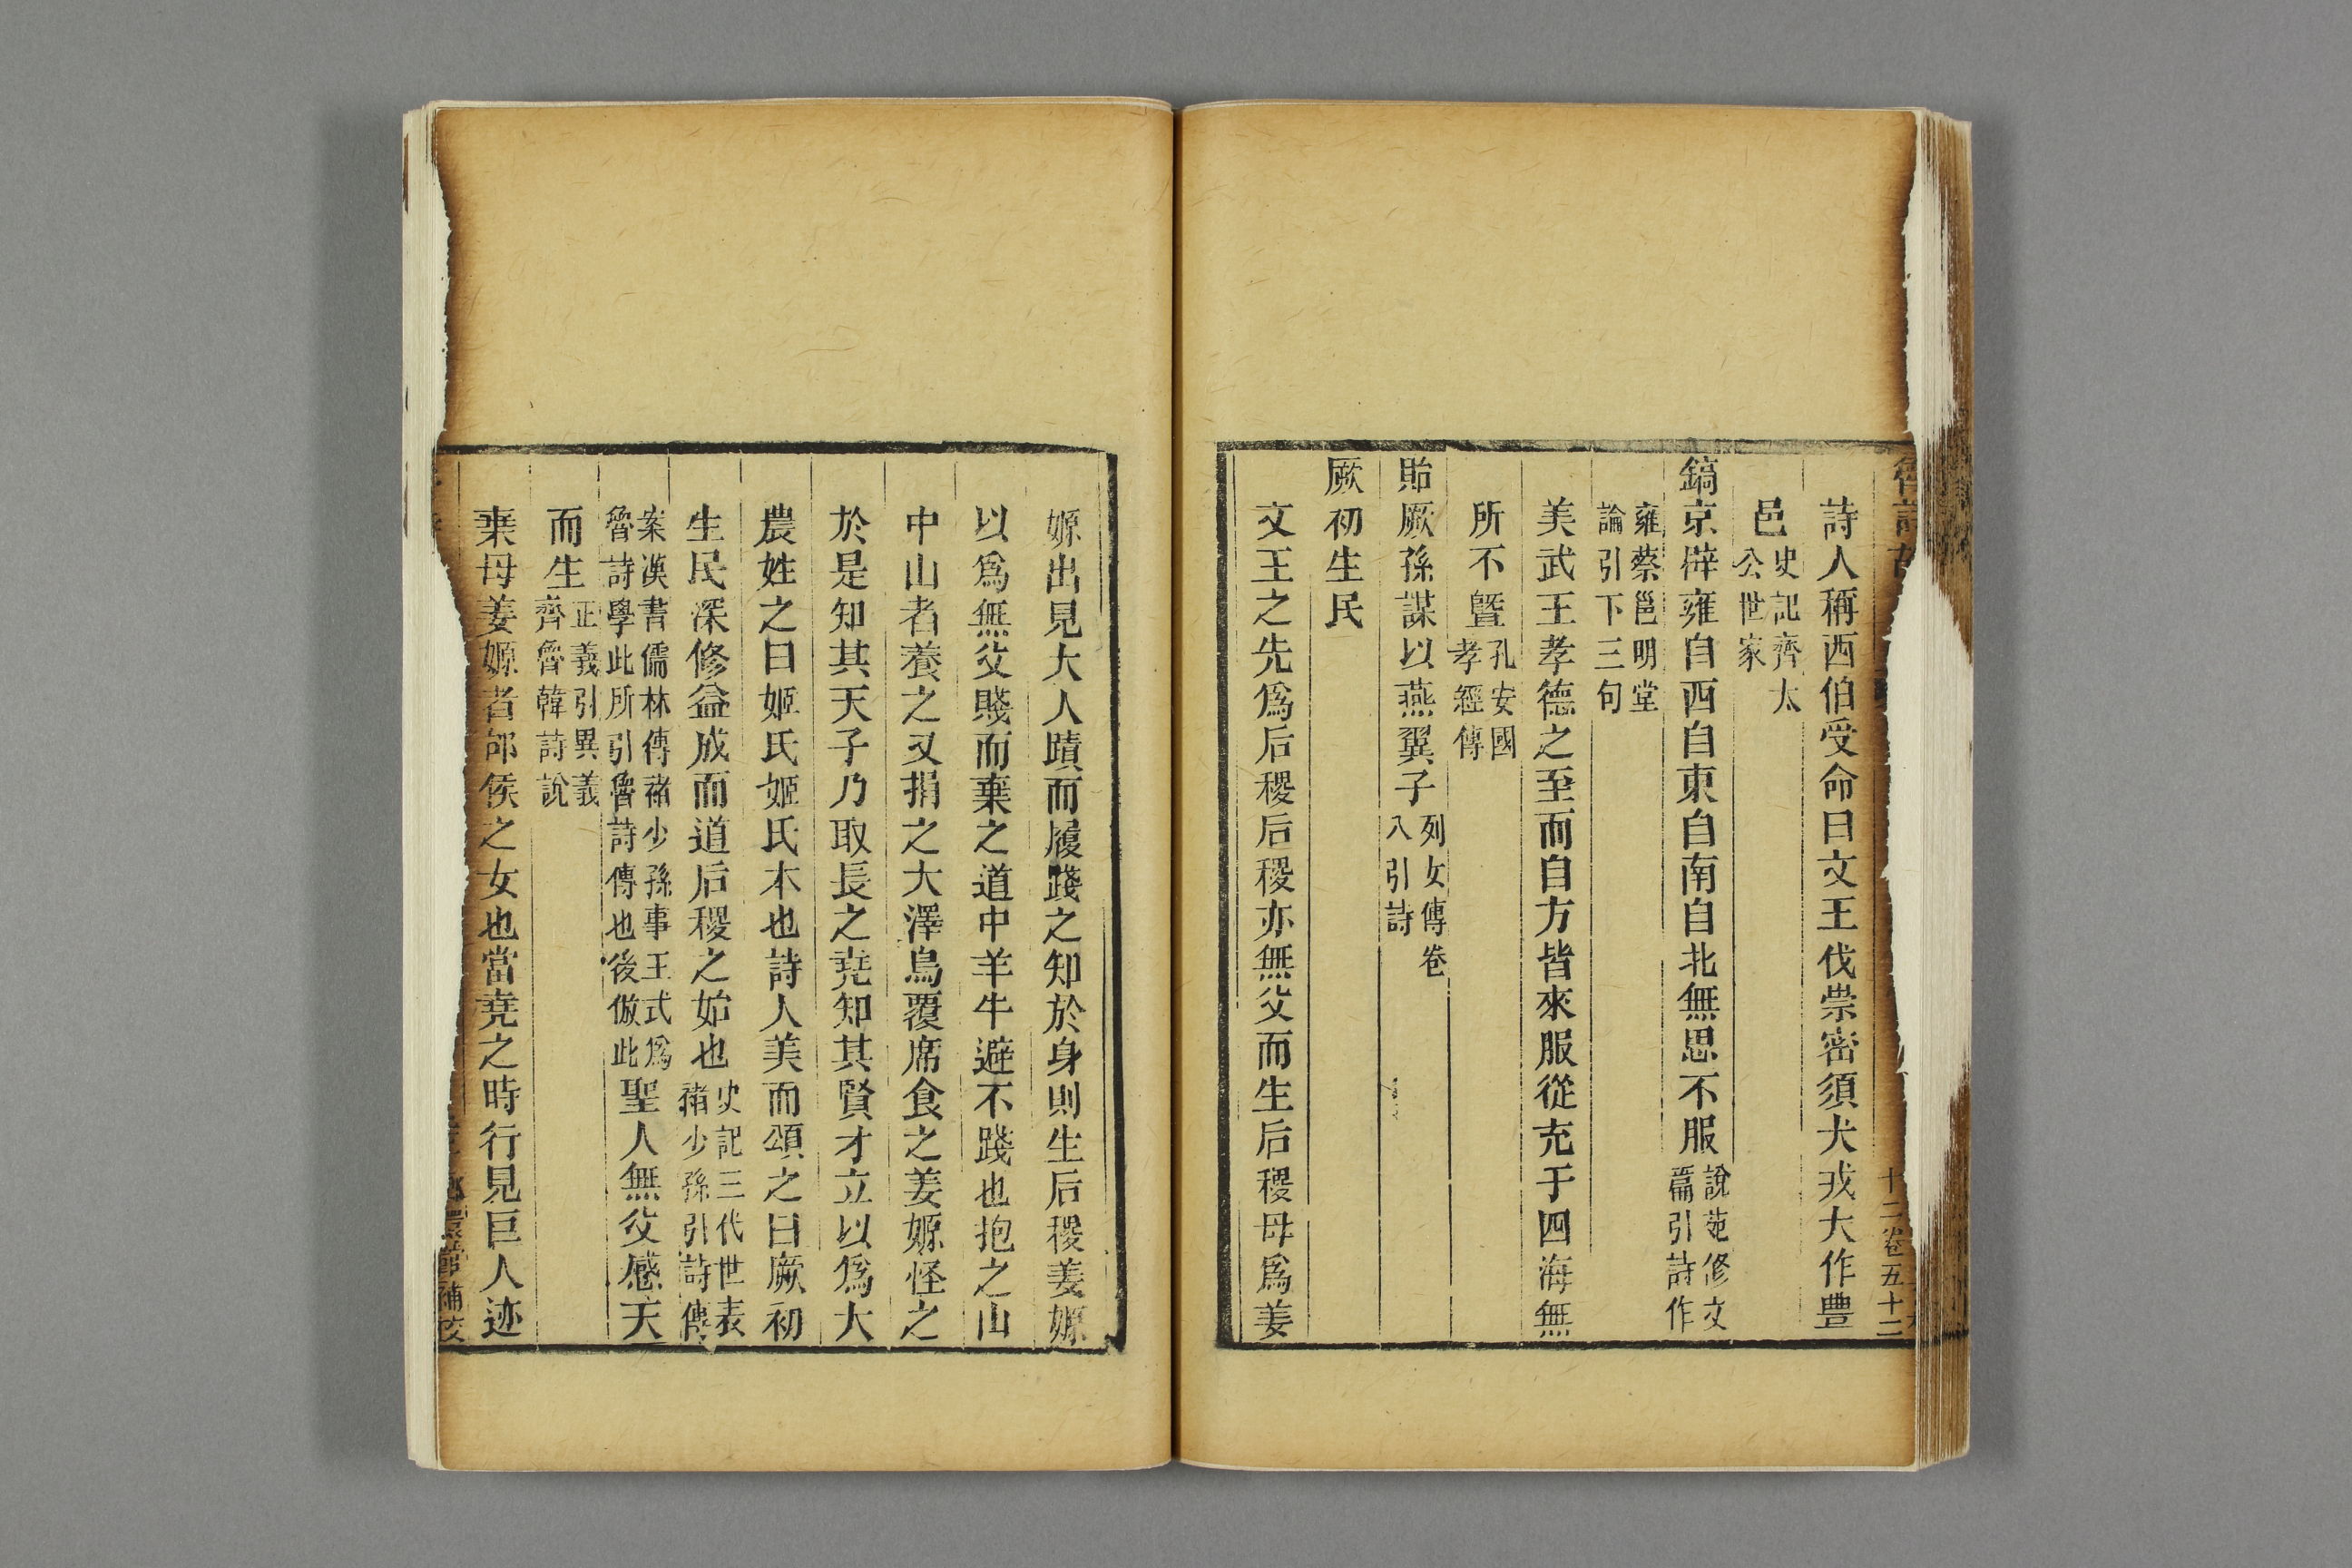 魯詩故
十二卷五十二
詩人稱西伯受命曰文王伐崇密須犬戎大作豊
邑史記齊太公世家
鎬京辟雍自西自東自南自北無思不服說苑修文篇引詩作
雍蔡邕明堂論引下三句
美武王孝德之至而自方皆來服從充于四海無
所不曁孔安國孝經傳
貽厥孫謀以燕翼子列女傳卷八引詩
厥初生民
文王之先爲后稷后稷亦無父而生后稷母爲姜
嫄出見大人蹟而履踐之知於身則生后稷姜嫄
以爲無父賤而棄之道中羊牛避不踐也抱之山
中山者養之又捐之大澤鳥覆席食之姜嫄怪之
於是知其天子乃取長之堯知其賢才立以爲大
農姓之曰姬氏姬氏本也詩人美而頌之曰厥初
生民深修益成而道后稷之始也史記三代世表褚少孫引詩傳
案漢書儒林傳褚少孫事王式爲魯詩學此所引魯詩傳也後倣此聖人無父感天
而生正義引異義齊魯韓詩說
棄母姜嫄者邰侯之女也當堯之時行見巨人迹
館補校